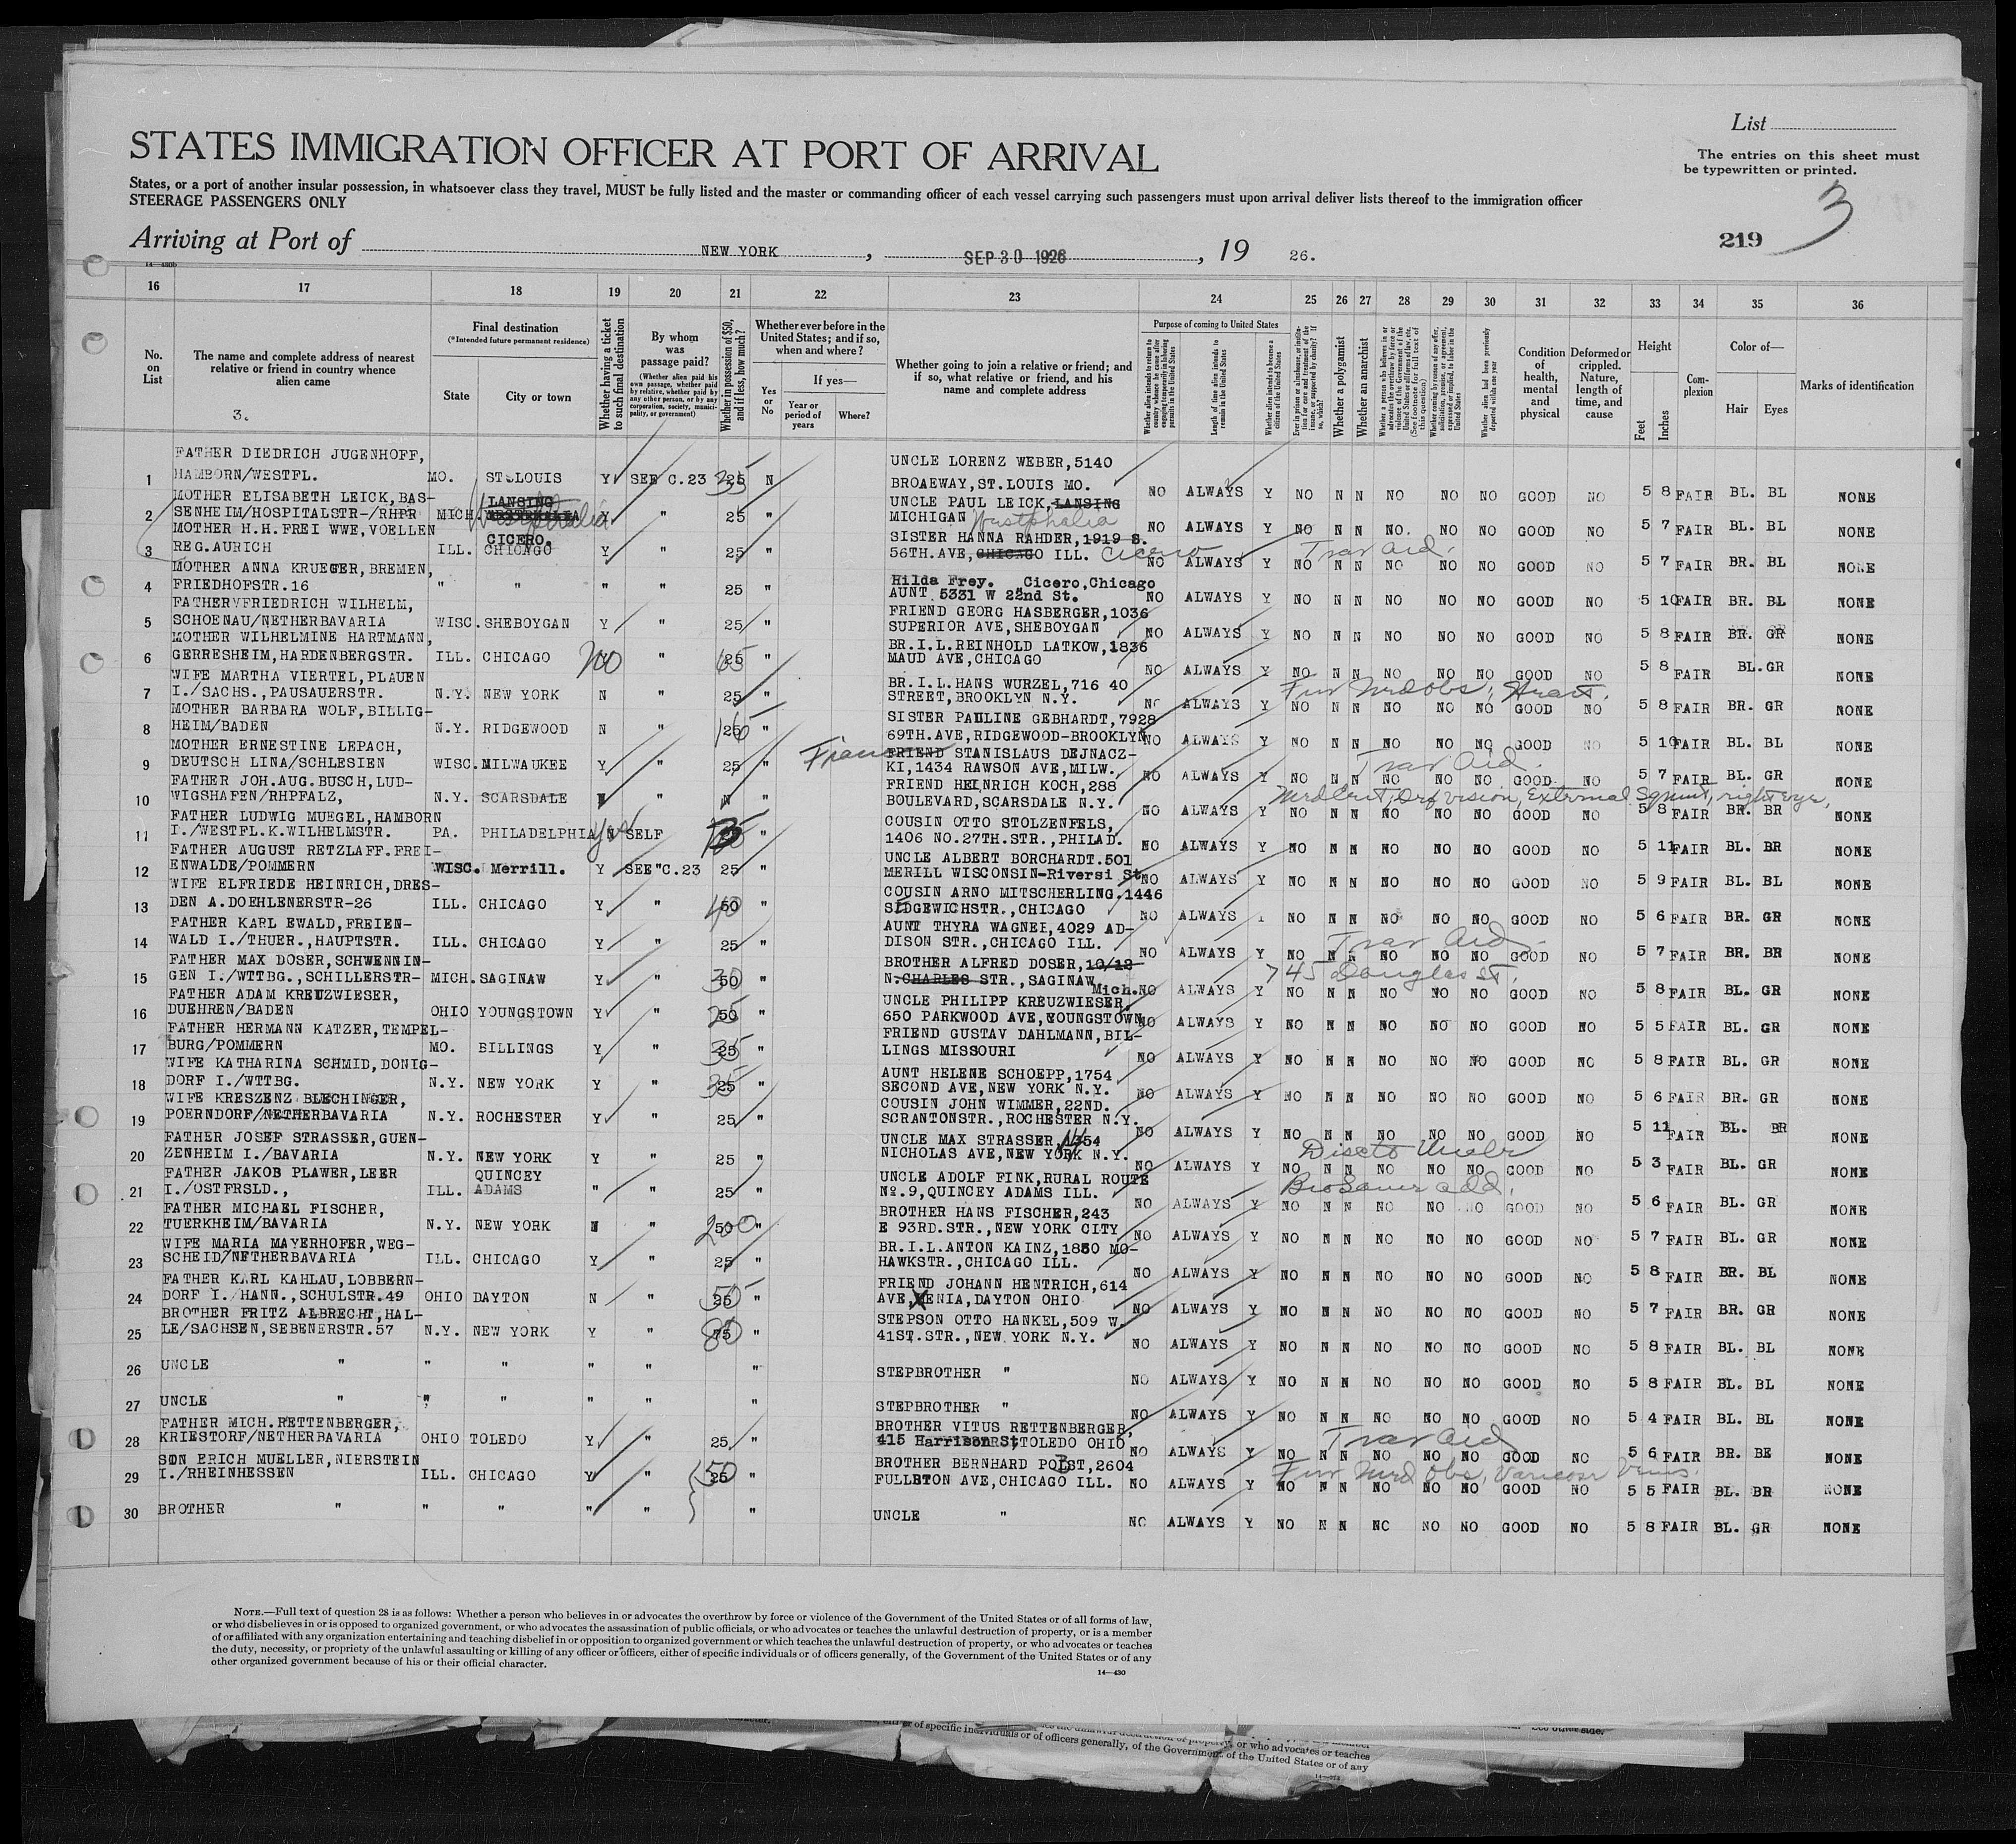 List
STATES IMMIGRATION OFFICER AT PORT OF ARRIVAL
The entries on this sheet must
be typewritten or printed.
States, or a port of another insular possession, in whatsoever class they travel, MUST be fully listed and the master or commanding officer of each vessel carrying such passengers must upon arrival deliver lists thereof to the immigration officer
STEERAGE PASSENGERS ONLY
3
Arriving at Port of NEW YORK, SEP 30 1926, 19 26.
219
16 17 18 19 20 21 22 23 24 25 26 27 28 29 30 31 32 33 34 35 36
No. on List
The name and complete address of nearest relative or friend in country whence alien came
3.
Final destination
(*Intended future permanent residence)
State
City or town
Whether having a ticket to such final destination
By whom was passage paid?
(Whether alien paid his own passage, whether paid by relative, whether paid by any other person, or by any corporation, society, municipality, or government)
Whether in possession of $50, and if less, how much?
Whether ever before in the United States; and if so, when and where?
Yes or No
If yes—
Year or period of years
Where?
Whether going to join a relative or friend; and if so, what relative or friend, and his name and complete address
Purpose of coming to United States
Whether alien intends to return to country whence he came after engaging temporarily in laboring pursuits in the United States
Length of time alien intends to remain in the United States
Whether alien intends to become a citizen of the United States
Whether a polygamist
Whether an anarchist
Condition of health, mental and physical
Deformed or crippled. Nature, length of time, and cause
Height
Feet
Inches
Complexion
Color of—
Hair
Eyes
Marks of identification
FATHER DIEDRICH JUGENHOFF,
UNCLE LORENZ WEBER,5140
1 HAMBORN/WESTFL. MO. ST.LOUIS Y SEE C.23 25 35 N BROAEWAY,ST.LOUIS MO. NO ALWAYS Y NO N N NO NO NO GOOD NO 5 8 FAIR BL. BL NONE
MOTHER ELISABETH LEICK,BAS- LANSING UNCLE PAUL LEICK,LANSING
2 SENHEIM/HOSPITALSTR-/RHPR MICH. Westphalia Y " 25 " MICHIGAN Westphalia NO ALWAYS Y NO N N NO. NO NO GOOD NO 5 7 FAIR BL. BL NONE
MOTHER H.H.FREI WWE,VOELLEN CICERO. SISTER HANNA RAHDER,1919 S.
3 REG.AURICH ILL. CHICAGO Y " 25 " 56TH.AVE,CHICAGO ILL. Cicero Trav Aid. NO ALWAYS Y NO N N NO NO NO GOOD NO 5 7 FAIR BR. BL NONE
MOTHER ANNA KRUEGER,BREMEN, Hilda Frey. Cicero,Chicago
4 FRIEDHOFSTR.16 " " " " 25 " AUNT 5331 W 22nd St. NO ALWAYS Y NO N N NO NO NO GOOD NO 5 10 FAIR BR. BL NONE
FATHER FRIEDRICH WILHELM, FRIEND GEORG HASBERGER,1036
5 SCHOENAU/NETHERBAVARIA WISC. SHEBOYGAN Y " 25 " SUPERIOR AVE,SHEBOYGAN NO ALWAYS Y NO N N NO NO NO GOOD NO 5 8 FAIR BR. GR NONE
MOTHER WILHELMINE HARTMANN, BR.I.L.REINHOLD LATKOW,1836
6 GERRESHEIM,HARDENBERGSTR. ILL. CHICAGO No " 25 65 " MAUD AVE,CHICAGO NO ALWAYS Y NO N N NO NO NO GOOD NO 5 8 FAIR BL. GR NONE
WIFE MARTHA VIERTEL,PLAUEN BR.I.L.HANS WURZEL,716 40
7 I./SACHS.,PAUSAUERSTR. N.Y. NEW YORK N " 25 " STREET,BROOKLYN N.Y. Fur Med obs, Heart. NO ALWAYS Y NO N N NO NO NO GOOD NO 5 8 FAIR BR. GR NONE
MOTHER BARBARA WOLF,BILLIG- SISTER PAULINE GEBHARDT,7928
8 HEIM/BADEN N.Y. RIDGEWOOD N " 25 " 69TH.AVE,RIDGEWOOD-BROOKLYN NO ALWAYS Y NO N N NO NO NO GOOD NO 5 10 FAIR BL. BL NONE
MOTHER ERNESTINE LEPACH, FRIEND STANISLAUS DEJNACZ-
9 DEUTSCH LINA/SCHLESIEN WISC. MILWAUKEE Y " 25 " KI,1434 RAWSON AVE,MILW. Trav Aid. NO ALWAYS Y NO N N NO NO NO GOOD NO 5 7 FAIR BL. GR NONE
FATHER JOH.AUG.BUSCH,LUD- FRIEND HEINRICH KOCH,288
10 WIGSHAFEN/RHPFALZ, N.Y. SCARSDALE N " N " BOULEVARD,SCARSDALE N.Y. Med Cert, Def vision, External Squint, right eye, NO ALWAYS Y NO N N NO NO NO GOOD NO 5 8 FAIR BR. BR NONE
FATHER LUDWIG MUEGEL,HAMBORN COUSIN OTTO STOLZENFELS,
11 I./WESTFL.K.WILHELMSTR. PA. PHILADELPHIA N yes SELF " 1406 NO.27TH.STR.,PHILAD. NO ALWAYS Y NO N N NO NO NO GOOD NO 5 11 FAIR BL. BR NONE
FATHER AUGUST RETZLAFF.FREI- UNCLE ALBERT BORCHARDT.501
12 ENWALDE/POMMERN WISC. Merrill. Y SEE"C.23 25 " MERILL WISCONSIN-Riversi St NO ALWAYS Y NO N N NO NO NO GOOD NO 5 9 FAIR BL. BL NONE
WIFE ELFRIEDE HEINRICH,DRES- COUSIN ARNO MITSCHERLING.1446
13 DEN A.DOEHLENERSTR-26 ILL. CHICAGO Y " 50 40 " SIDGEWICHSTR.,CHICAGO NO ALWAYS NO N N NO NO NO GOOD NO 5 6 FAIR BR. GR NONE
FATHER KARL EWALD,FREIEN- AUNT THYRA WAGNEI,4029 AD-
14 WALD I./THUER.,HAUPTSTR. ILL. CHICAGO Y " 25 " DISON STR.,CHICAGO ILL. Trav Aid. NO ALWAYS Y NO N N NO NO NO GOOD NO 5 7 FAIR BR. BR NONE
FATHER MAX DOSER,SCHWENNIN- BROTHER ALFRED DOSER,10/12
15 GEN I./WTTBG.,SCHILLERSTR- MICH. SAGINAW Y " 50 30 " N.CHARLES STR.,SAGINAW Mich. 745 Douglas St, NO ALWAYS Y NO N N NO NO NO GOOD NO 5 8 FAIR BL. GR NONE
FATHER ADAM KREUZWIESER, UNCLE PHILIPP KREUZWIESER,
16 DUEHREN/BADEN OHIO YOUNGSTOWN Y " 50 25 " 650 PARKWOOD AVE,YOUNGSTOWN NO ALWAYS Y NO N N NO NO NO GOOD NO 5 5 FAIR BL. GR NONE
FATHER HERMANN KATZER,TEMPEL- FRIEND GUSTAV DAHLMANN,BIL-
17 BURG/POMMERN MO. BILLINGS Y " 25 35 " LINGS MISSOURI NO ALWAYS Y NO N N NO NO NO GOOD NO 5 8 FAIR BL. GR NONE
WIFE KATHARINA SCHMID,DONIG- AUNT HELENE SCHOEPP,1754
18 DORF I./WTTBG. N.Y. NEW YORK Y " 25 35 " SECOND AVE,NEW YORK N.Y. NO ALWAYS Y NO N N NO NO NO GOOD NO 5 6 FAIR BR. GR NONE
WIFE KRESZENZ BLECHINGER, COUSIN JOHN WIMMER,22ND.
19 POERNDORF/NETHERBAVARIA N.Y. ROCHESTER Y " 25 " SCRANTONSTR.,ROCHESTER N.Y. NO ALWAYS Y NO N N NO NO NO GOOD NO 5 11 FAIR BL. BR NONE
FATHER JOSEF STRASSER,GUEN- UNCLE MAX STRASSER,1354
20 ZENHEIM I./BAVARIA N.Y. NEW YORK Y " 25 " NICHOLAS AVE,NEW YORK N.Y. Disc to Uncle NO ALWAYS Y NO N N NO NO NO GOOD NO 5 3 FAIR BL. GR NONE
FATHER JAKOB PLAWER,LEER QUINCEY UNCLE ADOLF FINK,RURAL ROUTE
21 I./OSTFRSLD., ILL. ADAMS " " 25 " No.9,QUINCEY ADAMS ILL. Bro Same add. NO ALWAYS Y NO N N NO NO NO GOOD NO 5 6 FAIR BL. GR NONE
FATHER MICHAEL FISCHER, BROTHER HANS FISCHER,243
22 TUERKHEIM/BAVARIA N.Y. NEW YORK N " 50 200 " E 93RD.STR.,NEW YORK CITY NO ALWAYS Y NO N N NO NO NO GOOD NO 5 7 FAIR BL. GR NONE
WIFE MARIA MAYERHOFER,WEG- BR.I.L.ANTON KAINZ,1850 MO-
23 SCHEID/NETHERBAVARIA ILL. CHICAGO Y " 25 " HAWKSTR.,CHICAGO ILL. NO ALWAYS Y NO N N NO NO NO GOOD NO 5 8 FAIR BR. BL NONE
FATHER KARL KAHLAU,LOBBERN- FRIEND JOHANN HENTRICH,614
24 DORF I./HANN.,SCHULSTR.49 OHIO DAYTON N " 50 " AVE,XENIA,DAYTON OHIO NO ALWAYS Y NO N N NO NO NO GOOD NO 5 7 FAIR BR. GR NONE
BROTHER FRITZ ALBRECHT,HAL- STEPSON OTTO HANKEL,509 W.
25 LE/SACHSEN,SEBENERSTR.57 N.Y. NEW YORK Y " 75 80 " 41ST.STR.,NEW YORK N.Y. NO ALWAYS Y NO N N NO NO NO GOOD NO 5 8 FAIR BL. BL NONE
26 UNCLE " " " " " " STEPBROTHER " NO ALWAYS Y NO N N NO NO NO GOOD NO 5 8 FAIR BL. BL NONE
27 UNCLE " " " " " " STEPBROTHER " NO ALWAYS Y NO N N NO NO NO GOOD NO 5 4 FAIR BL. BL NONE
FATHER MICH.RETTENBERGER, BROTHER VITUS RETTENBERGER,
28 KRIESTORF/NETHERBAVARIA OHIO TOLEDO Y " 25 " 415 Harrison St,TOLEDO OHIO Trav Aid NO ALWAYS Y NO N N NO NO NO GOOD NO 5 6 FAIR BR. BE NONE
SON ERICH MUELLER,NIERSTEIN BROTHER BERNHARD POIST,2604
29 I./RHEINHESSEN ILL. CHICAGO Y " 25 50 " FULLRTON AVE,CHICAGO ILL. Fur Med Obs, Varicose Veins. NO ALWAYS Y NO N N NO NO NO GOOD NO 5 5 FAIR BL. BR NONE
30 BROTHER " " " " " " UNCLE " NO ALWAYS Y NO N N NO NO NO GOOD NO 5 8 FAIR BL. GR NONE
NOTE.—Full text of question 28 is as follows: Whether a person who believes in or advocates the overthrow by force or violence of the Government of the United States or of all forms of law,
or who disbelieves in or is opposed to organized government, or who advocates the assassination of public officials, or who advocates or teaches the unlawful destruction of property, or is a member
of or affiliated with any organization entertaining and teaching disbelief in or opposition to organized government or which teaches the unlawful destruction of property, or who advocates or teaches
the duty, necessity, or propriety of the unlawful assaulting or killing of any officer or officers, either of specific individuals or of officers generally, of the Government of the United States or of any
other organized government because of his or their official character.
14—430
of specific individuals or of officers generally, of the Government of the United States or of any
or who advocates or teaches